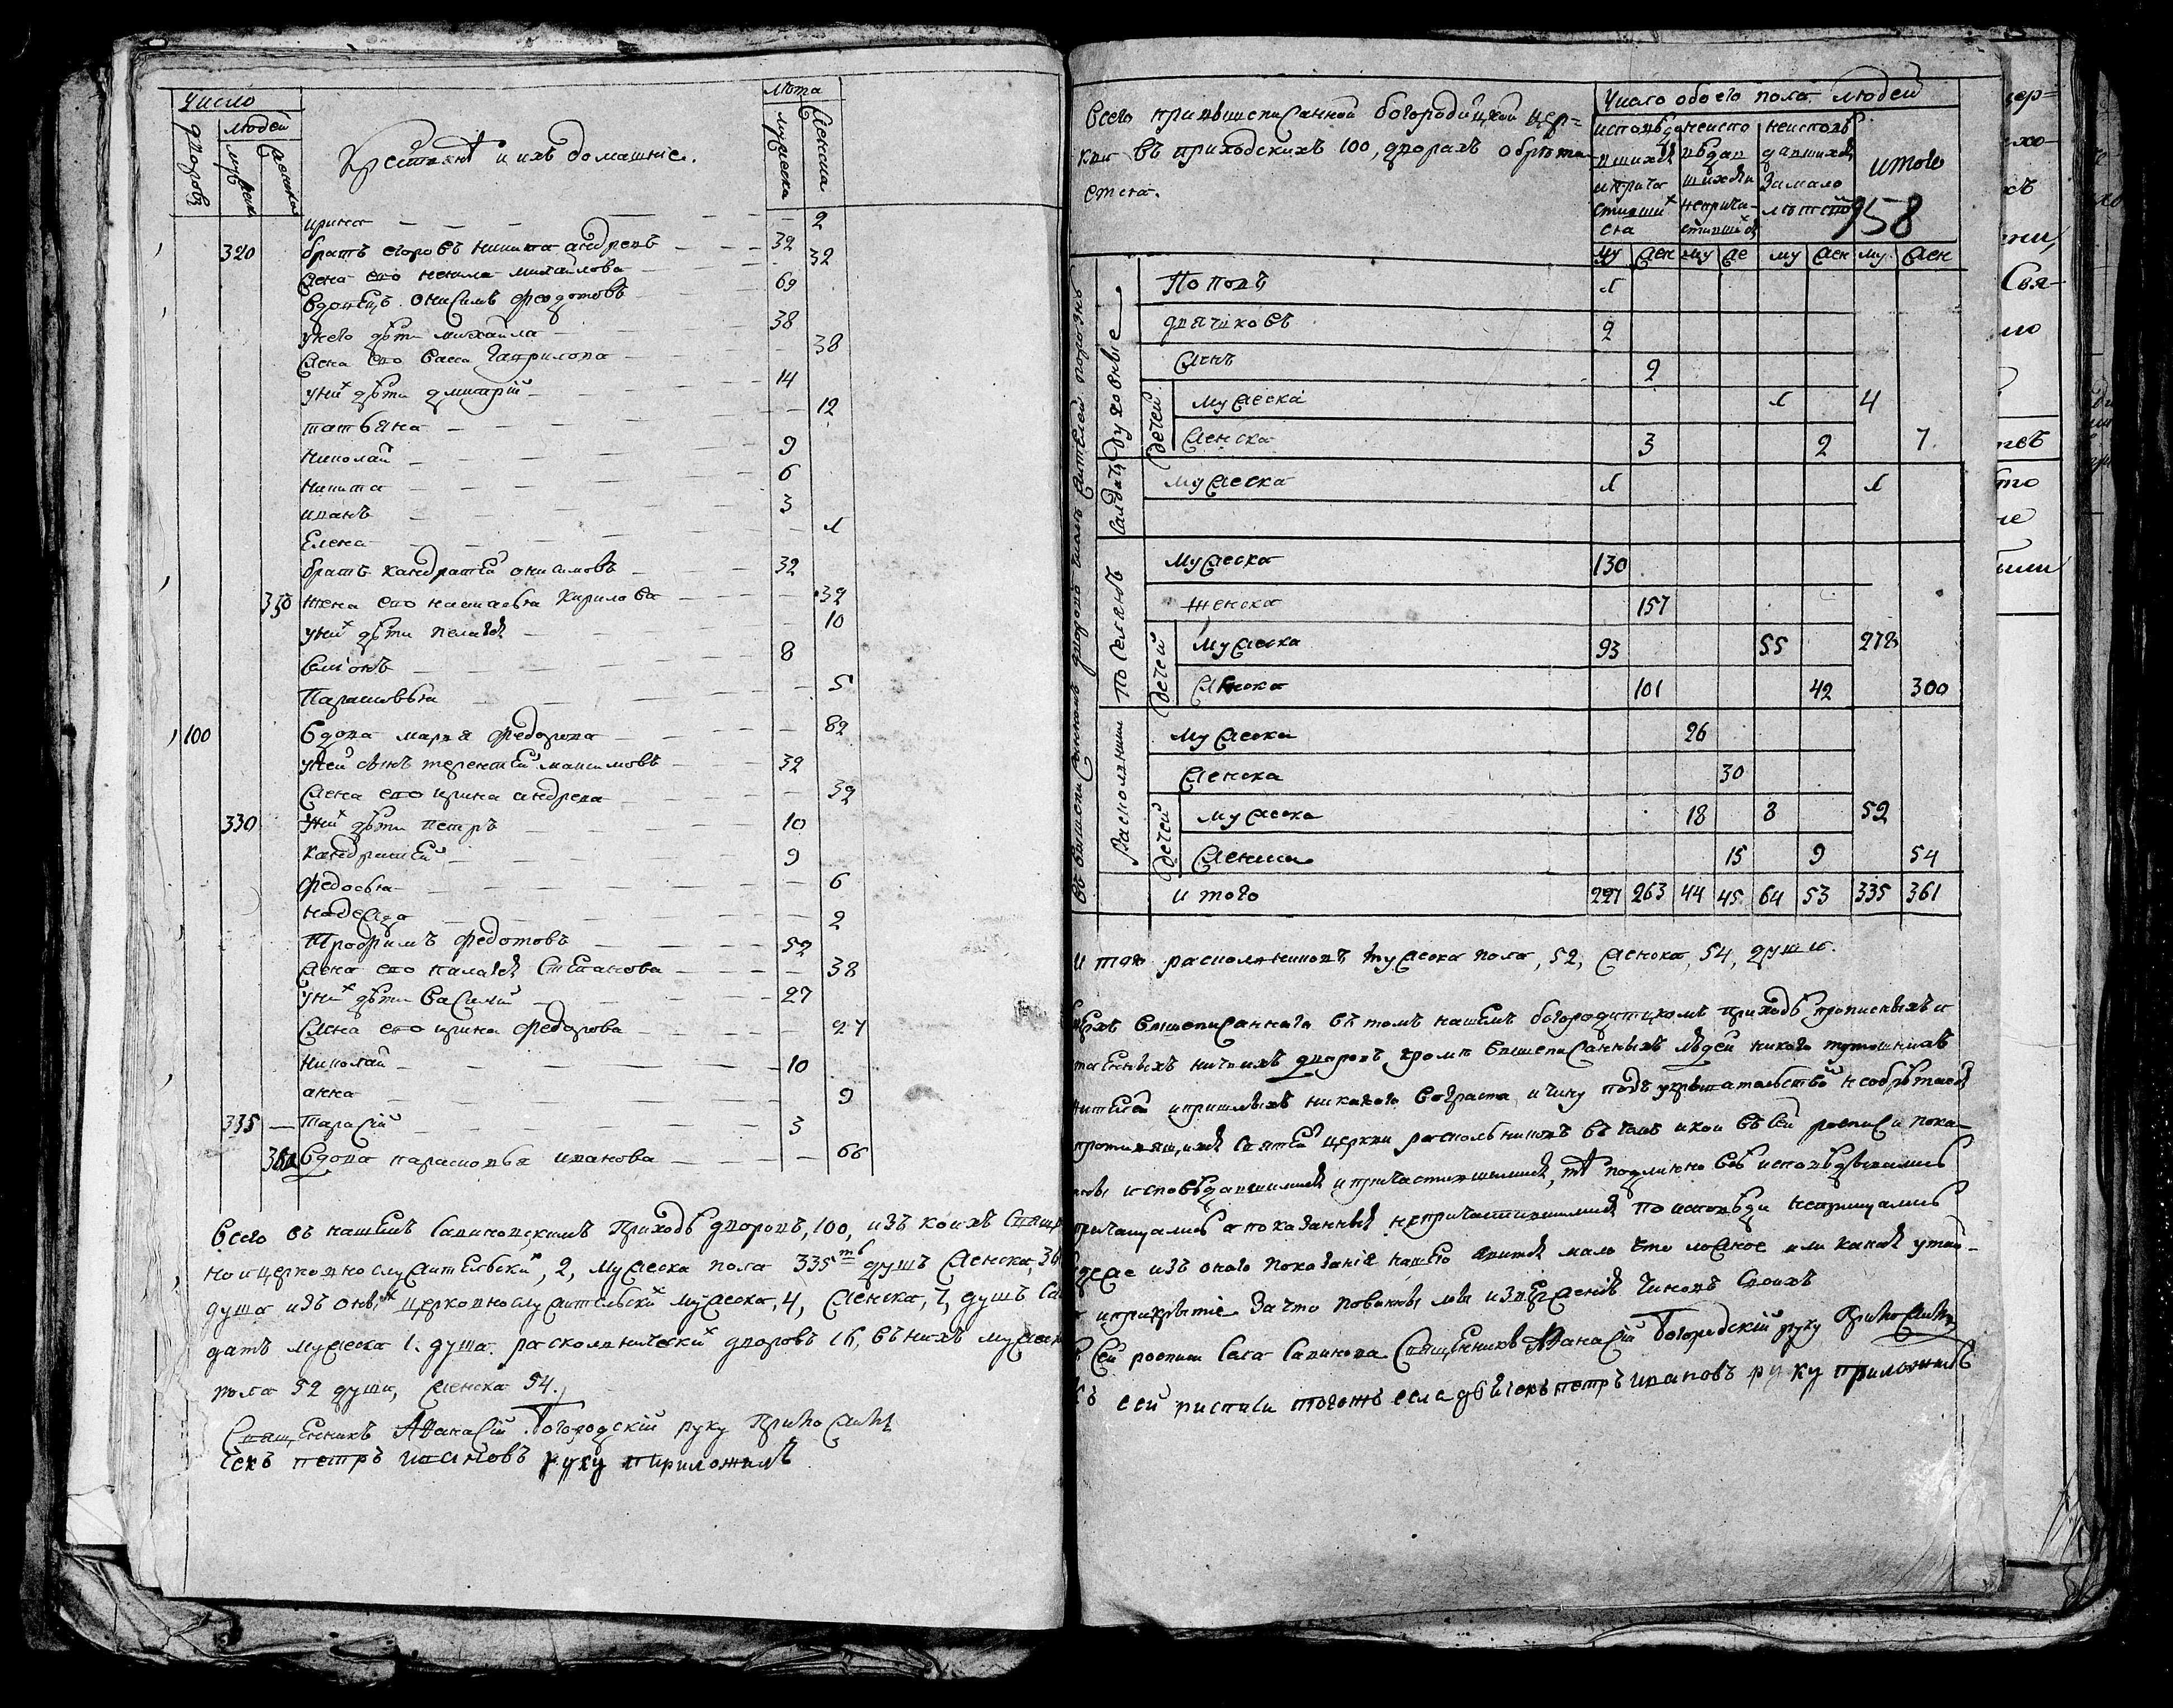 Число
людей
дворовъ
муска
женска
Крестьянъ и ихъ домашние.
лѣта
мужеска
женска
ирина 2
320 братъ егоровъ никита андреевъ 32
жена его ненила михайлова 32
вдовецъ онисимъ федотовъ 69
у него дѣти михайла 38
жена его васа гаврилова 38
у них дѣти дмитрій 14
татьяна 12
николай 9
никита 6
иванъ 3
елена 1
братъ кандратей онисимовъ 32
350 жена его настасья кирилова 32
у них дѣти пелагея 10
симіонъ 8
парасковья 5
100 вдова марья федорова 82
у ней сынъ терентей максимовъ 32
жена его ирина андреева 32
330 у них дѣти петръ 10
кандратей 9
федосья 6
надежда 2
трофимъ федотовъ 52
жена его палагея степанова 38
у них дѣти василий 27
жена его ирина федорова 27
николай 10
анна 9
335 тарасій 3
вдова парасковья иванова 66
всего въ нашемъ савиновскимъ приходѣ дворовъ, 100, изъ коихъ свящ
но и церковнослужительских, 2, мужеска пола 335 душъ женска, 36
душа изъ оных церковнослужительских мужеска, 4, женска, 7, душъ са
датъ мужеска 1. душа. расколнических дворовъ 16, въ нихъ мужеск
пола 52 души, женска 54.
Священникъ Афанасій Богородскій руку приложилъ
чекъ петръ ивановъ руку приложилъ
Всего при вышеписанной богородицкой цер=
кви въ приходскихъ 100, дворахъ обрета
ется.
Число обоего пола людей
исповѣдавшихся и причастившихся
неисповѣдавшихся и непричастившихся
неисповѣдавшихся за малолѣтст
итого
958
му жен му же му жен му. жен
въ вышеписанномъ
духовные
Поповъ 1
дьячковъ 2
женъ 2
детей
мужеска 1 4
женска 3 2 7
салдатъ
мужеска 1 1
поселянъ
мужеска 130
женска 157
детей
мужеска 93 55 278
женска 101 42 300
расколники
мужеска 26
женска 30
детей
мужеска 18 8 52
женска 15 9 54
итого 227 263 44 45 64 53 335 361
итого расколниковъ мужеска пола, 52, женска, 54, души.
вышеписаннаго въ томъ нашемъ богородитцкомъ приходѣ прописныхъ и
таенныхъ ничьихъ дворовъ, кромѣ вышеписанныхъ людей никого тутошнихъ
жителей и пришлыхъ никакого возраста и чину подъ укрывательством не обрѣтается
противящихся святей церкви расколниковъ въ томъ и кои въ сей росписи пока-
ны исповѣдавшимися и причастившимися, тѣ подлинно всѣ исповѣдывались
причащались а показанныя непричастившимися по исповѣди не причащались
ежели изъ оного показанія нашего явится мало что ложное или какая утай-
и прикрытіе за что повинны мы извержения чиновъ своихъ
сей росписи села савинова священникъ Афанасій Богородскій руку приложилъ
къ сей росписи тогожъ села дьячекъ петръ ивановъ руку приложилъ